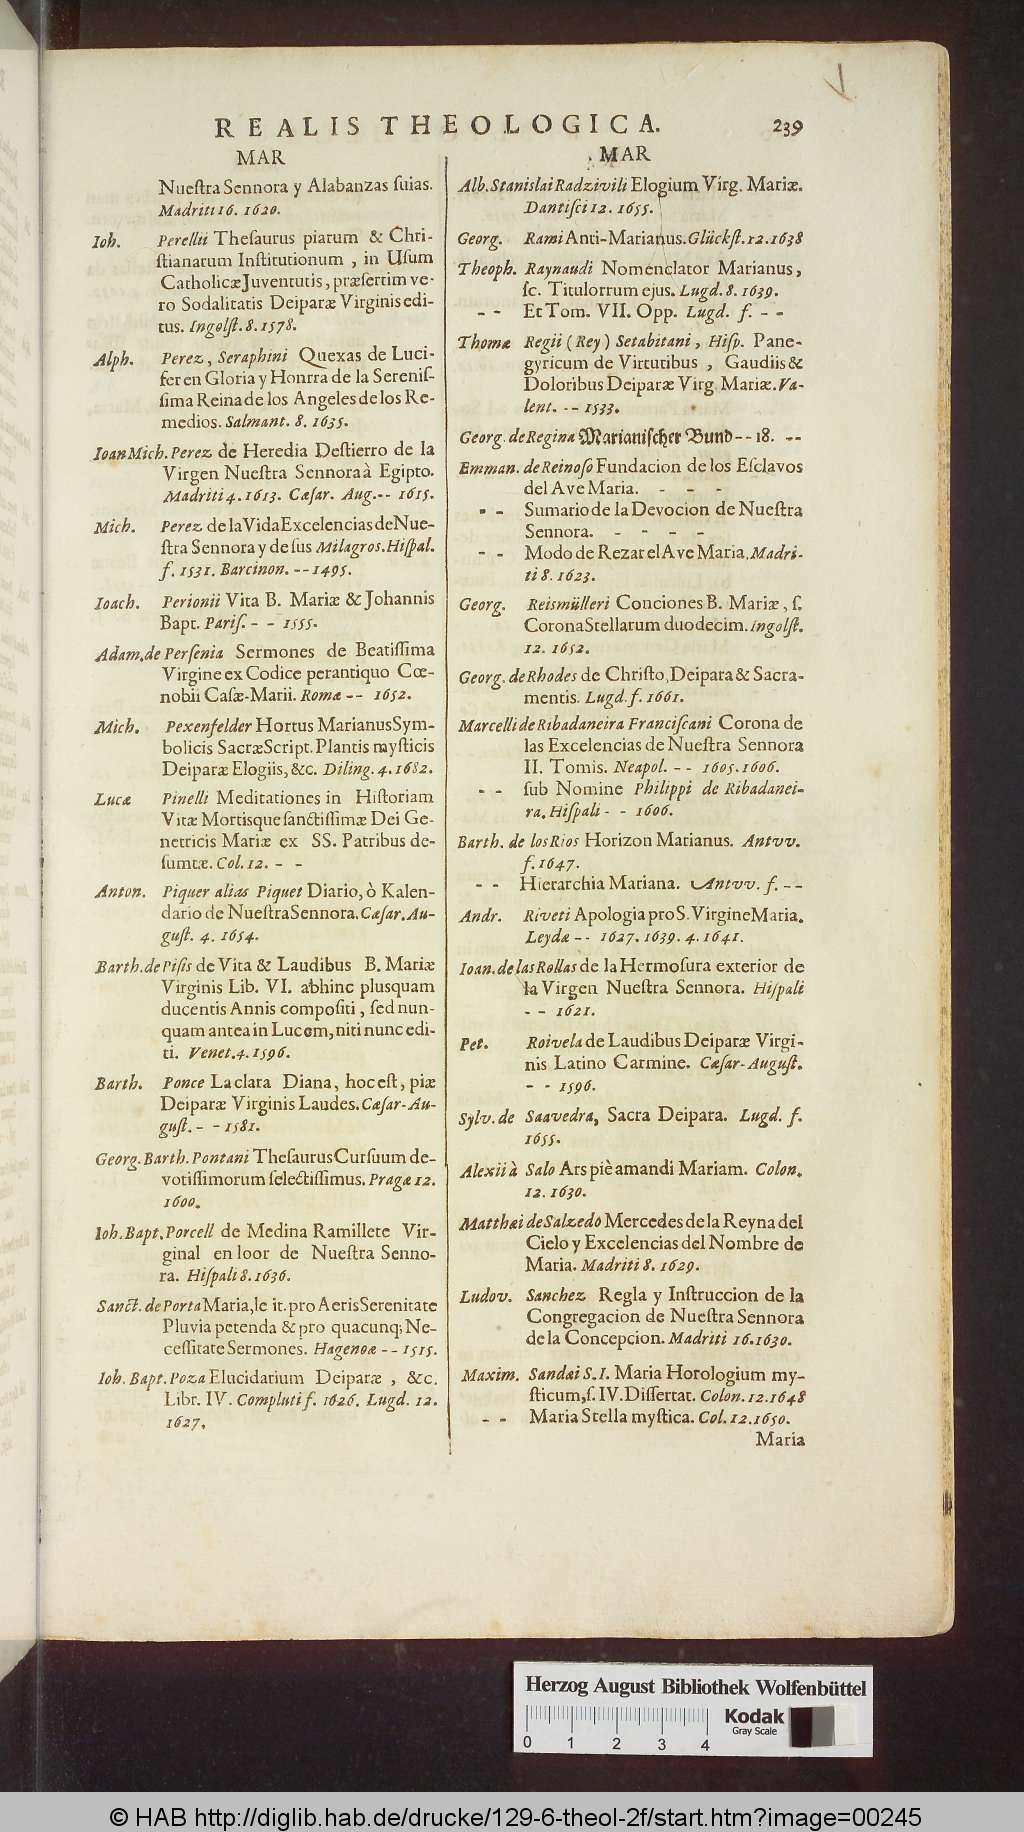 REALIS THEOLOGICA. 239
MAR
Nueſtra Sennora y Alabanzas ſuias.
Madriti 16. 1620.
Ioh. Perellii Theſaurus piarum & Chri-
ſtianarum Inſtitutionum, in Uſum
Catholicæ Juventutis, præſertim ve-
ro Sodalitatis Deiparæ Virginis edi-
tus. Ingolſt. 8. 1578.
Alph. Perez, Seraphini Quexas de Luci-
fer en Gloria y Honrra de la Sereniſ-
ſima Reina de los Angeles de los Re-
medios. Salmant. 8. 1635.
Ioan Mich. Perez de Heredia Deſtierro de la
Virgen Nueſtra Sennora à Egipto.
Madriti 4. 1613. Cæſar. Aug. -- 1615.
Mich. Perez de la Vida Excelencias de Nue-
ſtra Sennora y de ſus Milagros. Hiſpal.
f. 1531. Barcinon. -- 1495.
Ioach. Perionii Vita B. Mariæ & Johannis
Bapt. Pariſ. - - 1555.
Adam. de Perſenia Sermones de Beatiſſima
Virgine ex Codice perantiquo Cœ-
nobii Caſæ-Marii. Romæ -- 1652.
Mich. Pexenfelder Hortus Marianus Sym-
bolicis Sacræ Script. Plantis myſticis
Deiparæ Elogiis, &c. Diling. 4. 1682.
Lucæ Pinelli Meditationes in Hiſtoriam
Vitæ Mortisque ſanctiſſimæ Dei Ge-
netricis Mariæ ex SS. Patribus de-
ſumtæ. Col. 12. - -
Anton. Piquer alias Piquet Diario, ò Kalen-
dario de Nueſtra Sennora. Cæſar. Au-
guſt. 4. 1654.
Barth. de Piſis de Vita & Laudibus B. Mariæ
Virginis Lib. VI. abhinc plusquam
ducentis Annis compoſiti, ſed nun-
quam antea in Lucem, niti nunc edi-
ti. Venet. 4. 1596.
Barth. Ponce La clara Diana, hoc eſt, piæ
Deiparæ Virginis Laudes. Cæſar-Au-
guſt. - - 1581.
Georg. Barth. Pontani Theſaurus Curſuum de-
votiſſimorum ſelectiſſimus. Pragæ 12.
1600.
Ioh. Bapt. Porcell de Medina Ramillete Vir-
ginal en loor de Nueſtra Senno-
ra. Hiſpali 8. 1636.
Sanct. de Porta Maria, ſe it. pro Aeris Serenitate
Pluvia petenda & pro quacunq; Ne-
ceſſitate Sermones. Hagenoæ -- 1515.
Ioh. Bapt. Poza Elucidarium Deiparæ, &c.
Libr. IV. Compluti f. 1626. Lugd. 12.
1627.
MAR
Alb. Stanislai Radzivili Elogium Virg. Mariæ.
Dantiſci 12. 1655.
Georg. Rami Anti-Marianus. Glückſt. 12. 1638
Theoph. Raynaudi Nomenclator Marianus,
ſc. Titulorrum ejus. Lugd. 8. 1639.
- - Et Tom. VII. Opp. Lugd. f. - -
Thomæ Regii (Rey) Setabitani, Hiſp. Pane-
gyricum de Virtutibus, Gaudiis &
Doloribus Deiparæ Virg. Mariæ. Va-
lent. -- 1533.
Georg. de Regina Marianiſcher Bund -- 18. --
Emman. de Reinoſo Fundacion de los Eſclavos
del Ave Maria. - - -
- - Sumario de la Devocion de Nueſtra
Sennora. - - - -
- - Modo de Rezar el Ave Maria. Madri-
ti 8. 1623.
Georg. Reismülleri Conciones B. Mariæ, ſ.
Corona Stellarum duodecim. Ingolſt.
12. 1652.
Georg. de Rhodes de Chriſto, Deipara & Sacra-
mentis. Lugd. f. 1661.
Marcelli de Ribadaneira Franciſcani Corona de
las Excelencias de Nueſtra Sennora
II. Tomis. Neapol. -- 1605. 1606.
- - ſub Nomine Philippi de Ribadanei-
ra. Hiſpali - - 1606.
Barth. de los Rios Horizon Marianus. Antvv.
f. 1647.
- - Hierarchia Mariana. Antvv. f. --
Andr. Riveti Apologia pro S. Virgine Maria.
Leydæ -- 1627. 1639. 4. 1641.
Ioan. de las Rollas de la Hermoſura exterior de
la Virgen Nueſtra Sennora. Hiſpali
- - 1621.
Pet. Roivela de Laudibus Deiparæ Virgi-
nis Latino Carmine. Cæſar-Auguſt.
- - 1596.
Sylv. de Saavedra, Sacra Deipara. Lugd. f.
1655.
Alexii à Salo Ars piè amandi Mariam. Colon.
12. 1630.
Matthæi de Salzedo Mercedes de la Reyna del
Cielo y Excelencias del Nombre de
Maria. Madriti 8. 1629.
Ludov. Sanchez Regla y Inſtruccion de la
Congregacion de Nueſtra Sennora
de la Concepcion. Madriti 16. 1630.
Maxim. Sandæi S. I. Maria Horologium my-
ſticum, ſ. IV. Diſſertat. Colon. 12. 1648
- - Maria Stella myſtica. Col. 12. 1650.
Maria
Herzog August Bibliothek Wolfenbüttel
Kodak
Gray Scale
0 1 2 3 4
© HAB http://diglib.hab.de/drucke/129-6-theol-2f/start.htm?image=00245